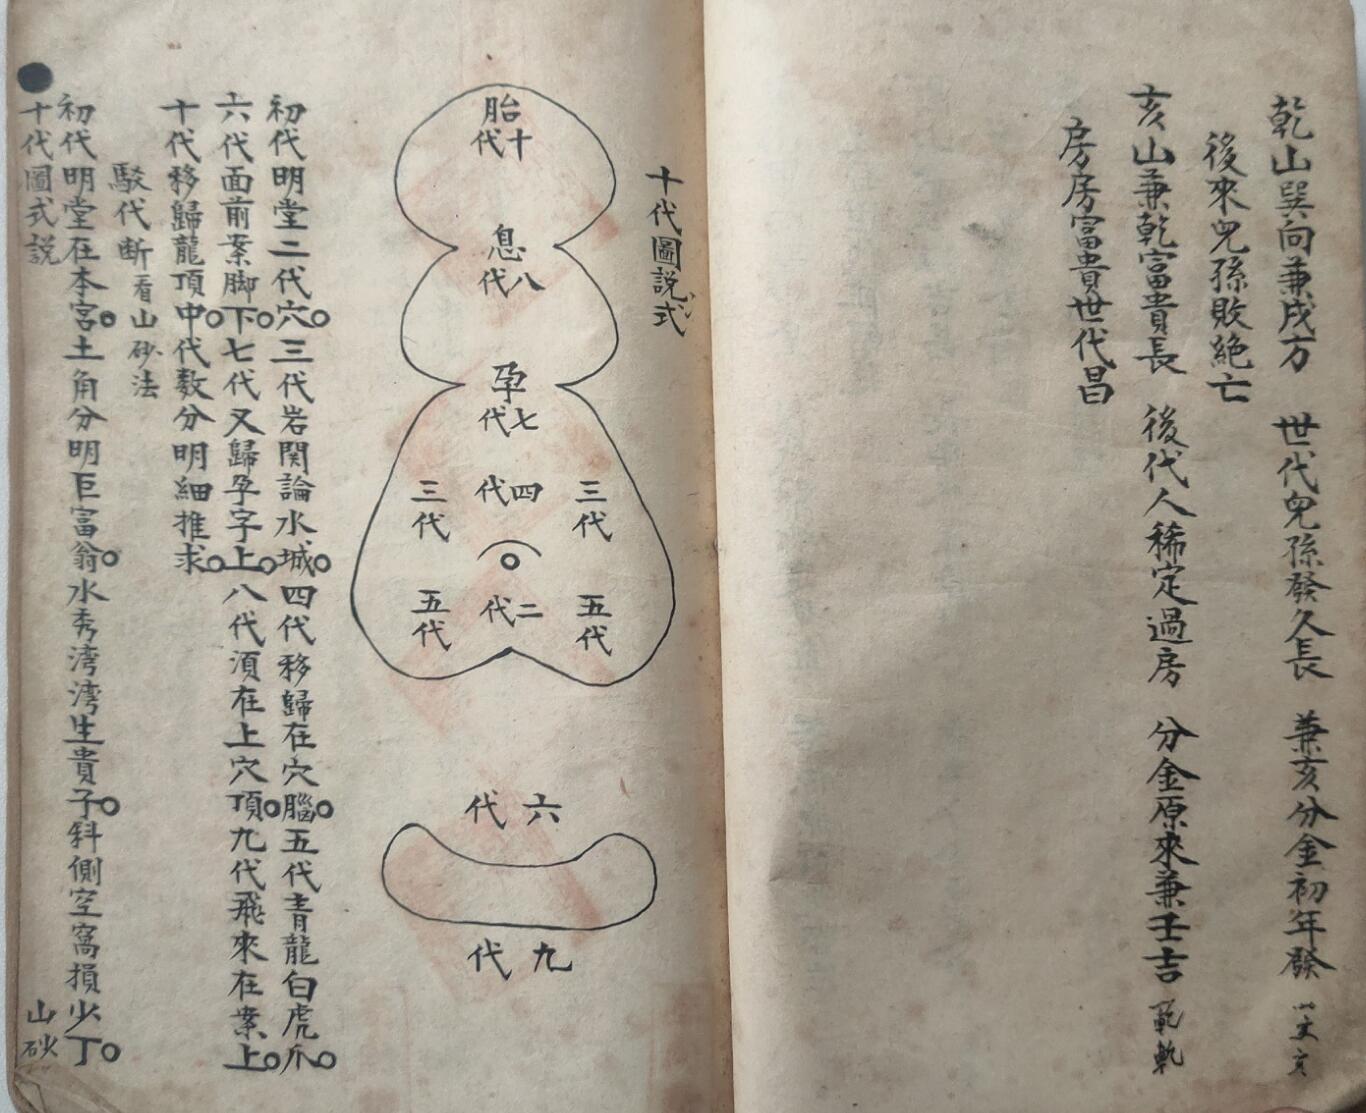 乾山巽向兼戌方 世代兒孫發久長 兼亥分金初年發
後來兒孫敗絕亡
亥山兼乾富貴長 後代人稀定過房 分金原來兼壬吉
房房富貴世代昌
十代圖說式
胎
十代
息
八代
孕
七代
三代
四代
三代
五代
二代
五代
六代
九代
初代明堂二代穴 三代岩関論水城 四代移歸在穴腦 五代青龍白虎爪
六代面前案脚下 七代又歸孕字上 八代湏在上穴頂 九代飛來在案上
十代移歸龍頂中 代数分明細推求
駁代断 看山砂法
初代明堂在本宮 土角分明巨富翁 水秀湾湾生貴子 斜側空窩損少丁
十代圖式説 山砂